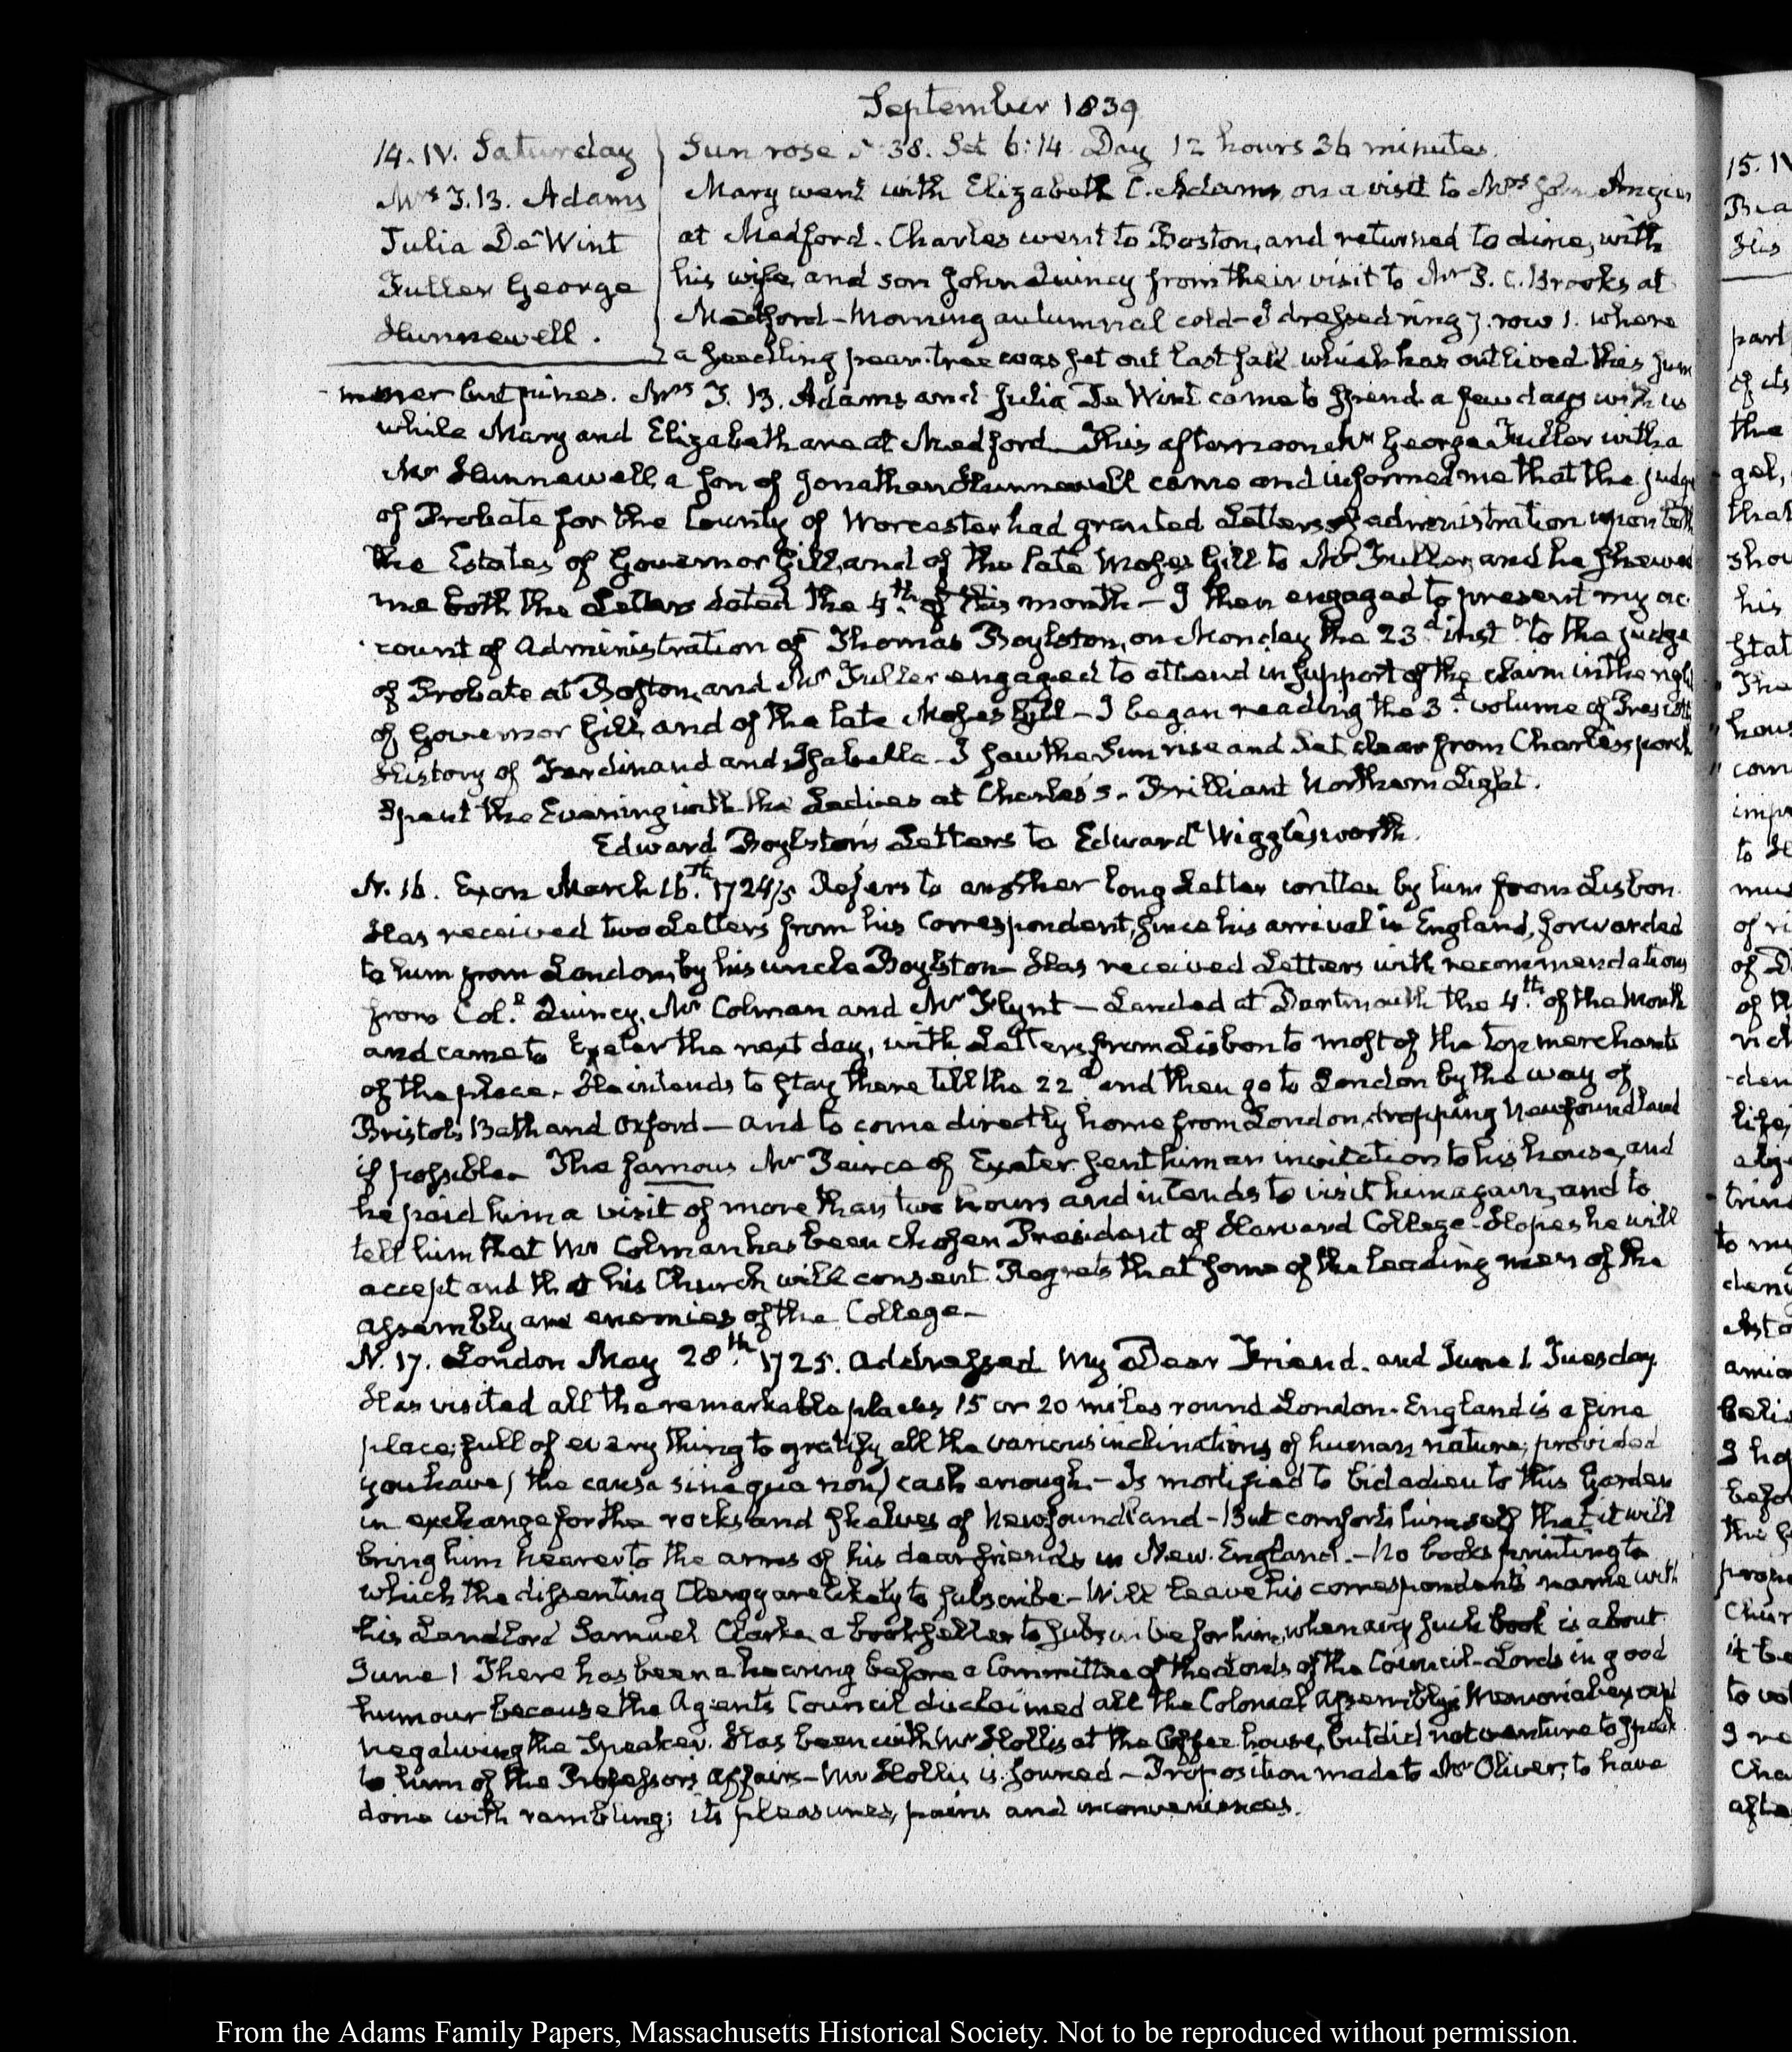 September 1839
14. IV. Saturday
Mrs T. B. Adams
Julia De Wint
Fuller George
Hunnewell.
Sun rose 5:38. Set 6:14. Day 12 hours 36 minutes.
Mary went with Elizabeth C. Adams, on a visit to Mrs John Angier
at Medford. Charles went to Boston, and returned to dine, with
his wife, and son John Quincy from their visit to Mr P. C. Brooks at
Medford—Morning autumnal cold—I dressed ring 7. row 1. where
a seedling pear-tree was set out last fall which has outlived this sum
mer but pines. Mrs T. B. Adams and Julia De Wint came to spend a few days with us
while Mary and Elizabeth are at Medford—This afternoon Mr George Fuller with a
Mr Hunnewell, a son of Jonathan Hunnewell came and informed me that the judge
of Probate for the County of Worcester had granted Letters of administration upon both
the Estates of Governor Gill, and of the late Moses Gill to Mr Fuller, and he shewed
me both the Letters dated the 4th of this month—I then engaged to present my ac
count of Administration of Thomas Boylston, on Monday the 23d inst to the judge
of Probate at Boston, and Mr Fuller engaged to attend in support of the claim in the right
of Governor Gill, and of the late Moses Gill—I began reading the 3d volume of Prescott
History of Ferdinand and Isabella—I saw the Sun rise and set clear from Charles's porch
Spent the Evening with the Ladies at Charles's—Brilliant Northern Light.
Edward Boylston's Letters to Edward Wigglesworth.
N. 16. Exon March 16th. 1724/5 Refers to another long Letter written by him from Lisbon.
Has received two Letters from his Correspondent, since his arrival in England, forwarded
to him from London, by his uncle Boylston—Has received Letters with recommendations
from Coll. Quincy, Mr Colman and Mr Flynt—Landed at Dartmouth the 4th of the Month
and came to Exeter the next day, with Letters from Lisbon to most of the top merchants
of the place. He intends to stay there till the 22d and then go to London by the way of
Bristol, Bath and Oxford—and to come directly home from London, dropping Newfoundland
if possible. The famous Mr Peirce of Exeter sent him an invitation to his house, and
he paid him a visit of more than two hours and intends to visit him again, and to
tell him that Mr Colman has been chosen President of Harvard College—Hopes he will
accept and that his Church will consent Regrets that some of the leading men of the
assembly are enemies of the College—
N. 17. London May 28th. 1725. addressed My Dear Friend. and June 1 Tuesday.
Has visited all the remarkable places 15 or 20 miles round London. England is a fine
place; full of every thing to gratify all the various inclinations of human nature; provided
you have (the causa sine qua non) cash enough.—Is mortified to bid adieu to this Garden
in exchange for the rocks and shelves of Newfoundland—But comforts himself that it will
bring him nearer to the arms of his dear friends in New-England.—No books printing to
which the dissenting Clergy are likely to subscribe—Will leave his correspondents name with
his Landlord Samuel Clarke, a bookseller to subscribe for him, when any such book is about
June 1 There has been a hearing before a Committee of the Lords of the Council—Lords in good
humour because the Agents Council disclaimed all the Colonial Assembly's Memorial
negativing the Speaker. Has been with Mr Hollis at the Coffee house, but did not venture to speak
to him of the Professors affairs—Mr Hollis is soured—Proposition made to Mr Oliver, to have
done with rambling; its pleasures, pains and inconveniences.
15. IV
part
of its
the
get,
that
his
The
com
to
of
of D
of th
life,
to my
amia
I ha
befo
the
Chur
it be
I re
Cha
afte
From the Adams Family Papers, Massachusetts Historical Society. Not to be reproduced without permission.